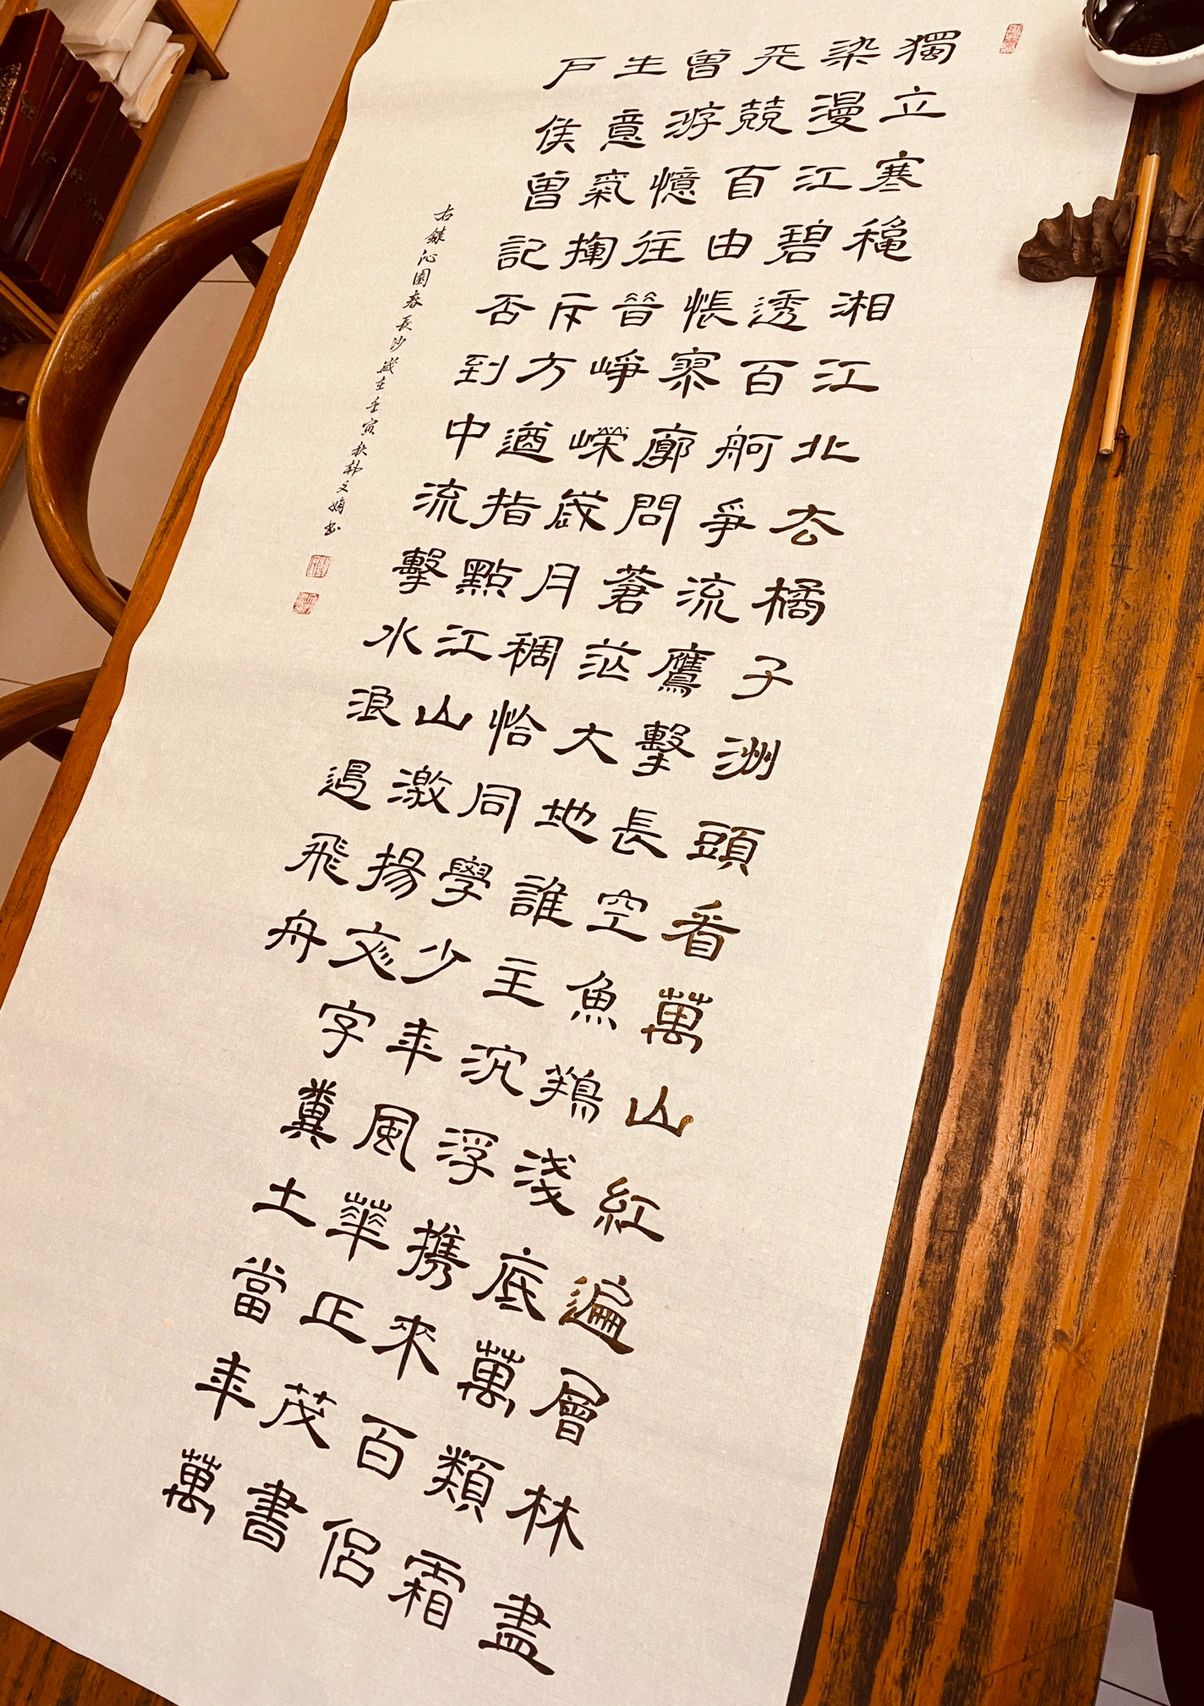 獨立寒穐湘江北去橘子洲頭看萬山紅遍層林盡
染漫江碧透百舸爭流鷹擊長空魚鴹淺底萬類霜
天競自由悵寥廓問蒼茫大地誰主沉浮携來百侶
曾游憶往昔崢嶸歲月稠恰同學少年風華正茂書
生意氣揮斥方遒指點江山激揚文字糞土當年萬
戶侯曾記否到中流擊水浪遏飛舟
右錄沁園春長沙歲在壬寅秋韓文娟書